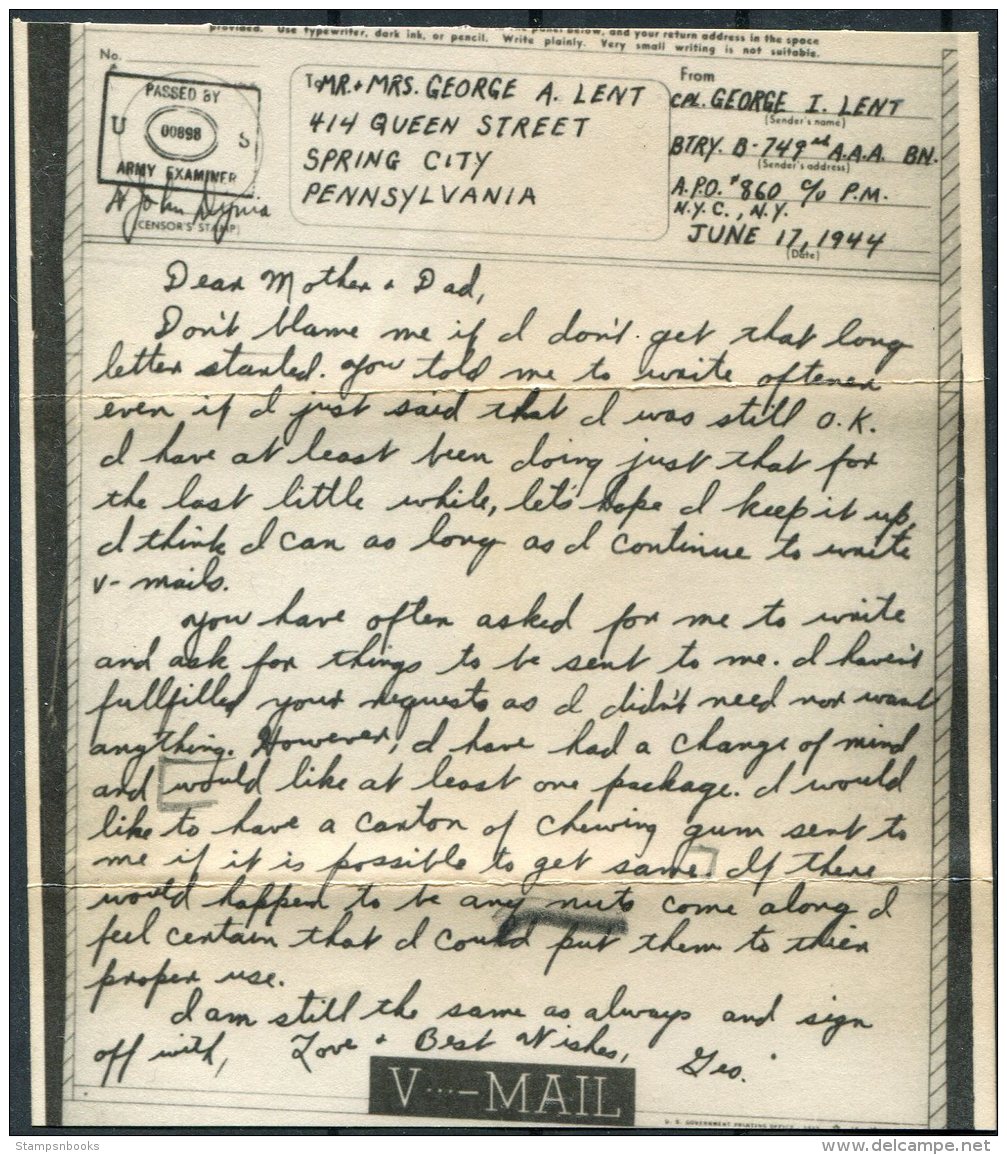 provided. Use typewriter, dark ink, or pencil. Write plainly. Very small writing is not suitable.
panel below, and your return address in the space
No.
PASSED BY
U 00898 S
ARMY EXAMINER
(CENSOR'S STAMP)
To MR. + MRS. GEORGE A. LENT
414 QUEEN STREET
SPRING CITY
PENNSYLVANIA
From
CPL. GEORGE I. LENT
(Sender's name)
BTRY. B-749nd A.A.A. BN.
(Sender's address)
A.P.O. #860 c/o P.M.
N.Y.C., N.Y.
JUNE 17, 1944
(Date)
Dear Mother + Dad,
Don't blame me if I don't get that long
letter started. You told me to write oftener
even if I just said that I was still O.K.
I have at least been doing just that for
the last little while, let's hope I keep it up,
I think I can as long as I continue to write
V-mails.
You have often asked for me to write
and ask for things to be sent to me. I haven't
fullfilled your requests as I didn't need nor want
anything. However, I have had a change of mind
and would like at least one package. I would
like to have a carton of chewing gum sent to
me if it is possible to get same. If there
would happen to be any nuts come along I
feel certain that I could put them to thier
proper use.
I am still the same as always and sign
off with, Love + Best Wishes,
Geo.
V···—MAIL
U. S. GOVERNMENT PRINTING OFFICE
Stampsnbooks
delcampe.net